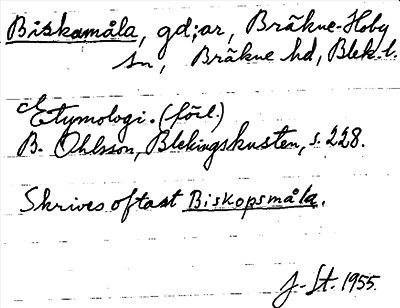 Biskamåla, gd;ar, Bräkne-Hoby
sn, Bräkne hd, Blek. l.
Etymologi. (förl.)
B. Ohlsson, Blekingskusten, s. 228.
Skrives oftast Biskopsmåla.
J. St. 1955.